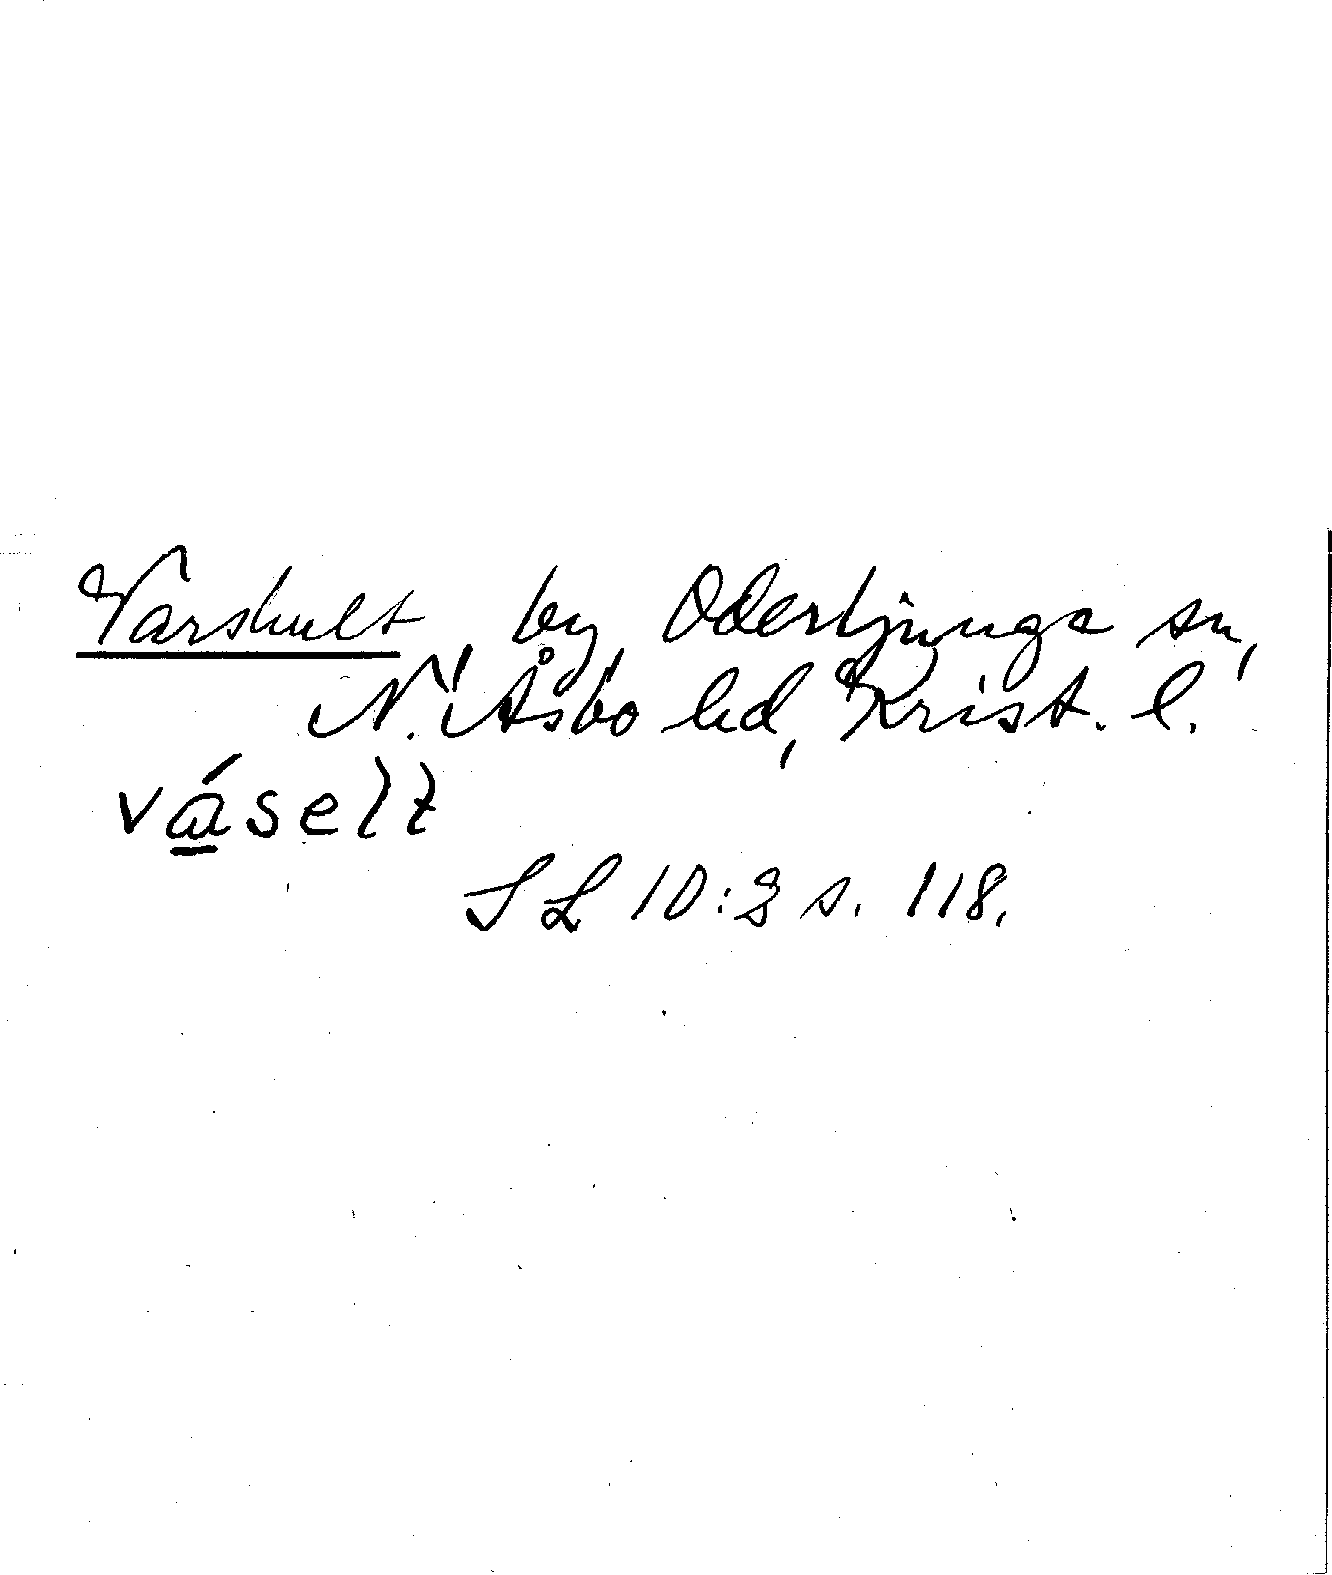 Varshult by Oderljunga sn,
N. Åsbo hd, Krist. l.
váselt
SL 10:3 s. 118.